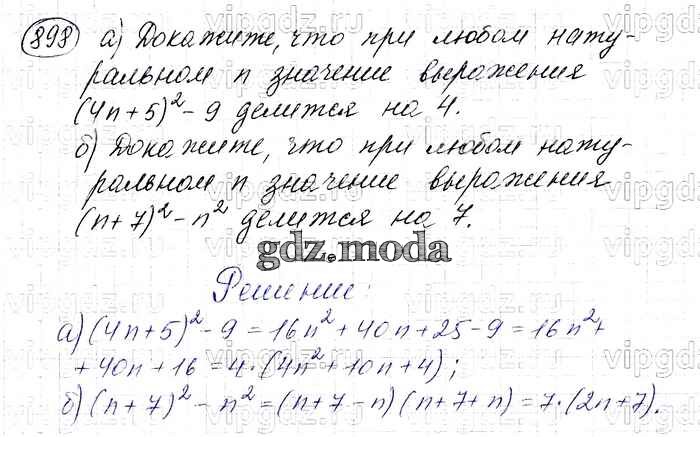 898 а) Докажите, что при любом нату-
ральном n значение выражения
(4n+5)² - 9 делится на 4.
б) Докажите, что при любом нату-
ральном n значение выражения
(n+7)² - n² делится на 7.
gdz.moda
Решение:
а) (4n+5)² - 9 = 16n² + 40n + 25 - 9 = 16n² +
+ 40n + 16 = 4 · (4n² + 10n + 4);
б) (n+7)² - n² = (n+7-n)(n+7+n) = 7·(2n+7).